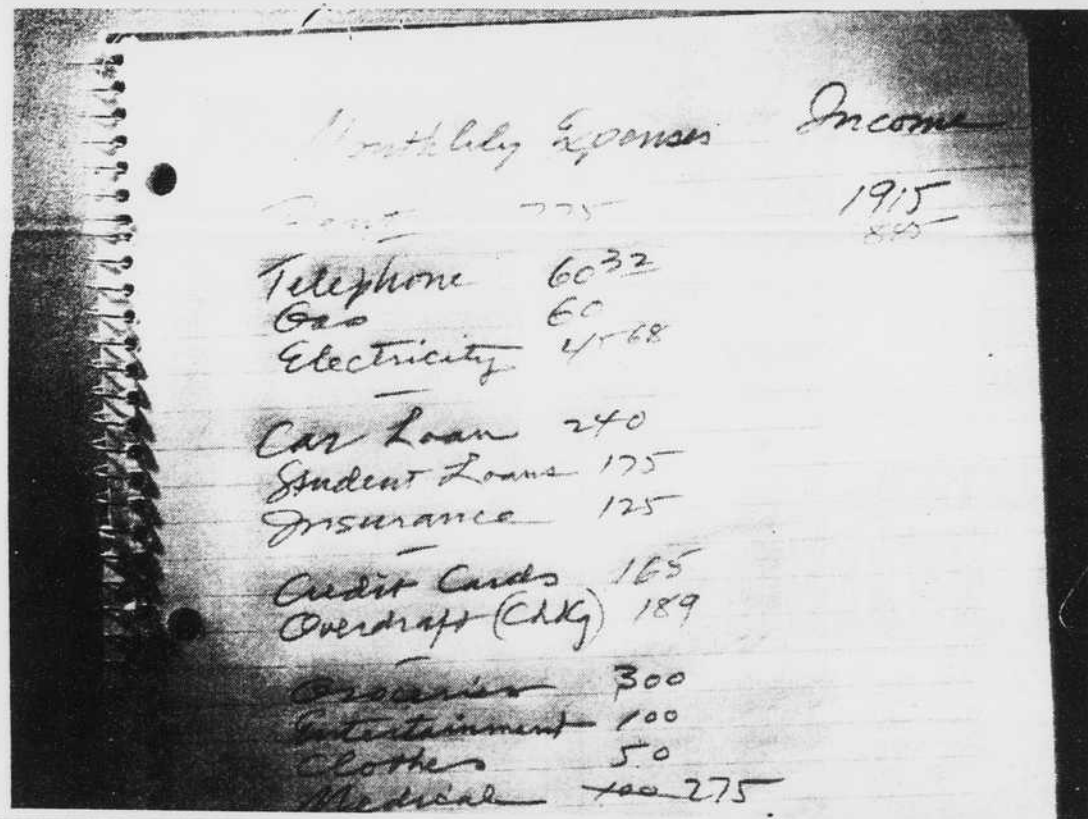 Monthlily Expenses Income
Rent 775 1915
845
Telephone 60 32
Gas 60
Electricity 45 68
Car Loan 240
Student Loans 175
Insurance 125
Credit Cards 165
Overdraft (ChKg) 189
Groceries 300
Entertainment 100
Clothes 50
Medical 275